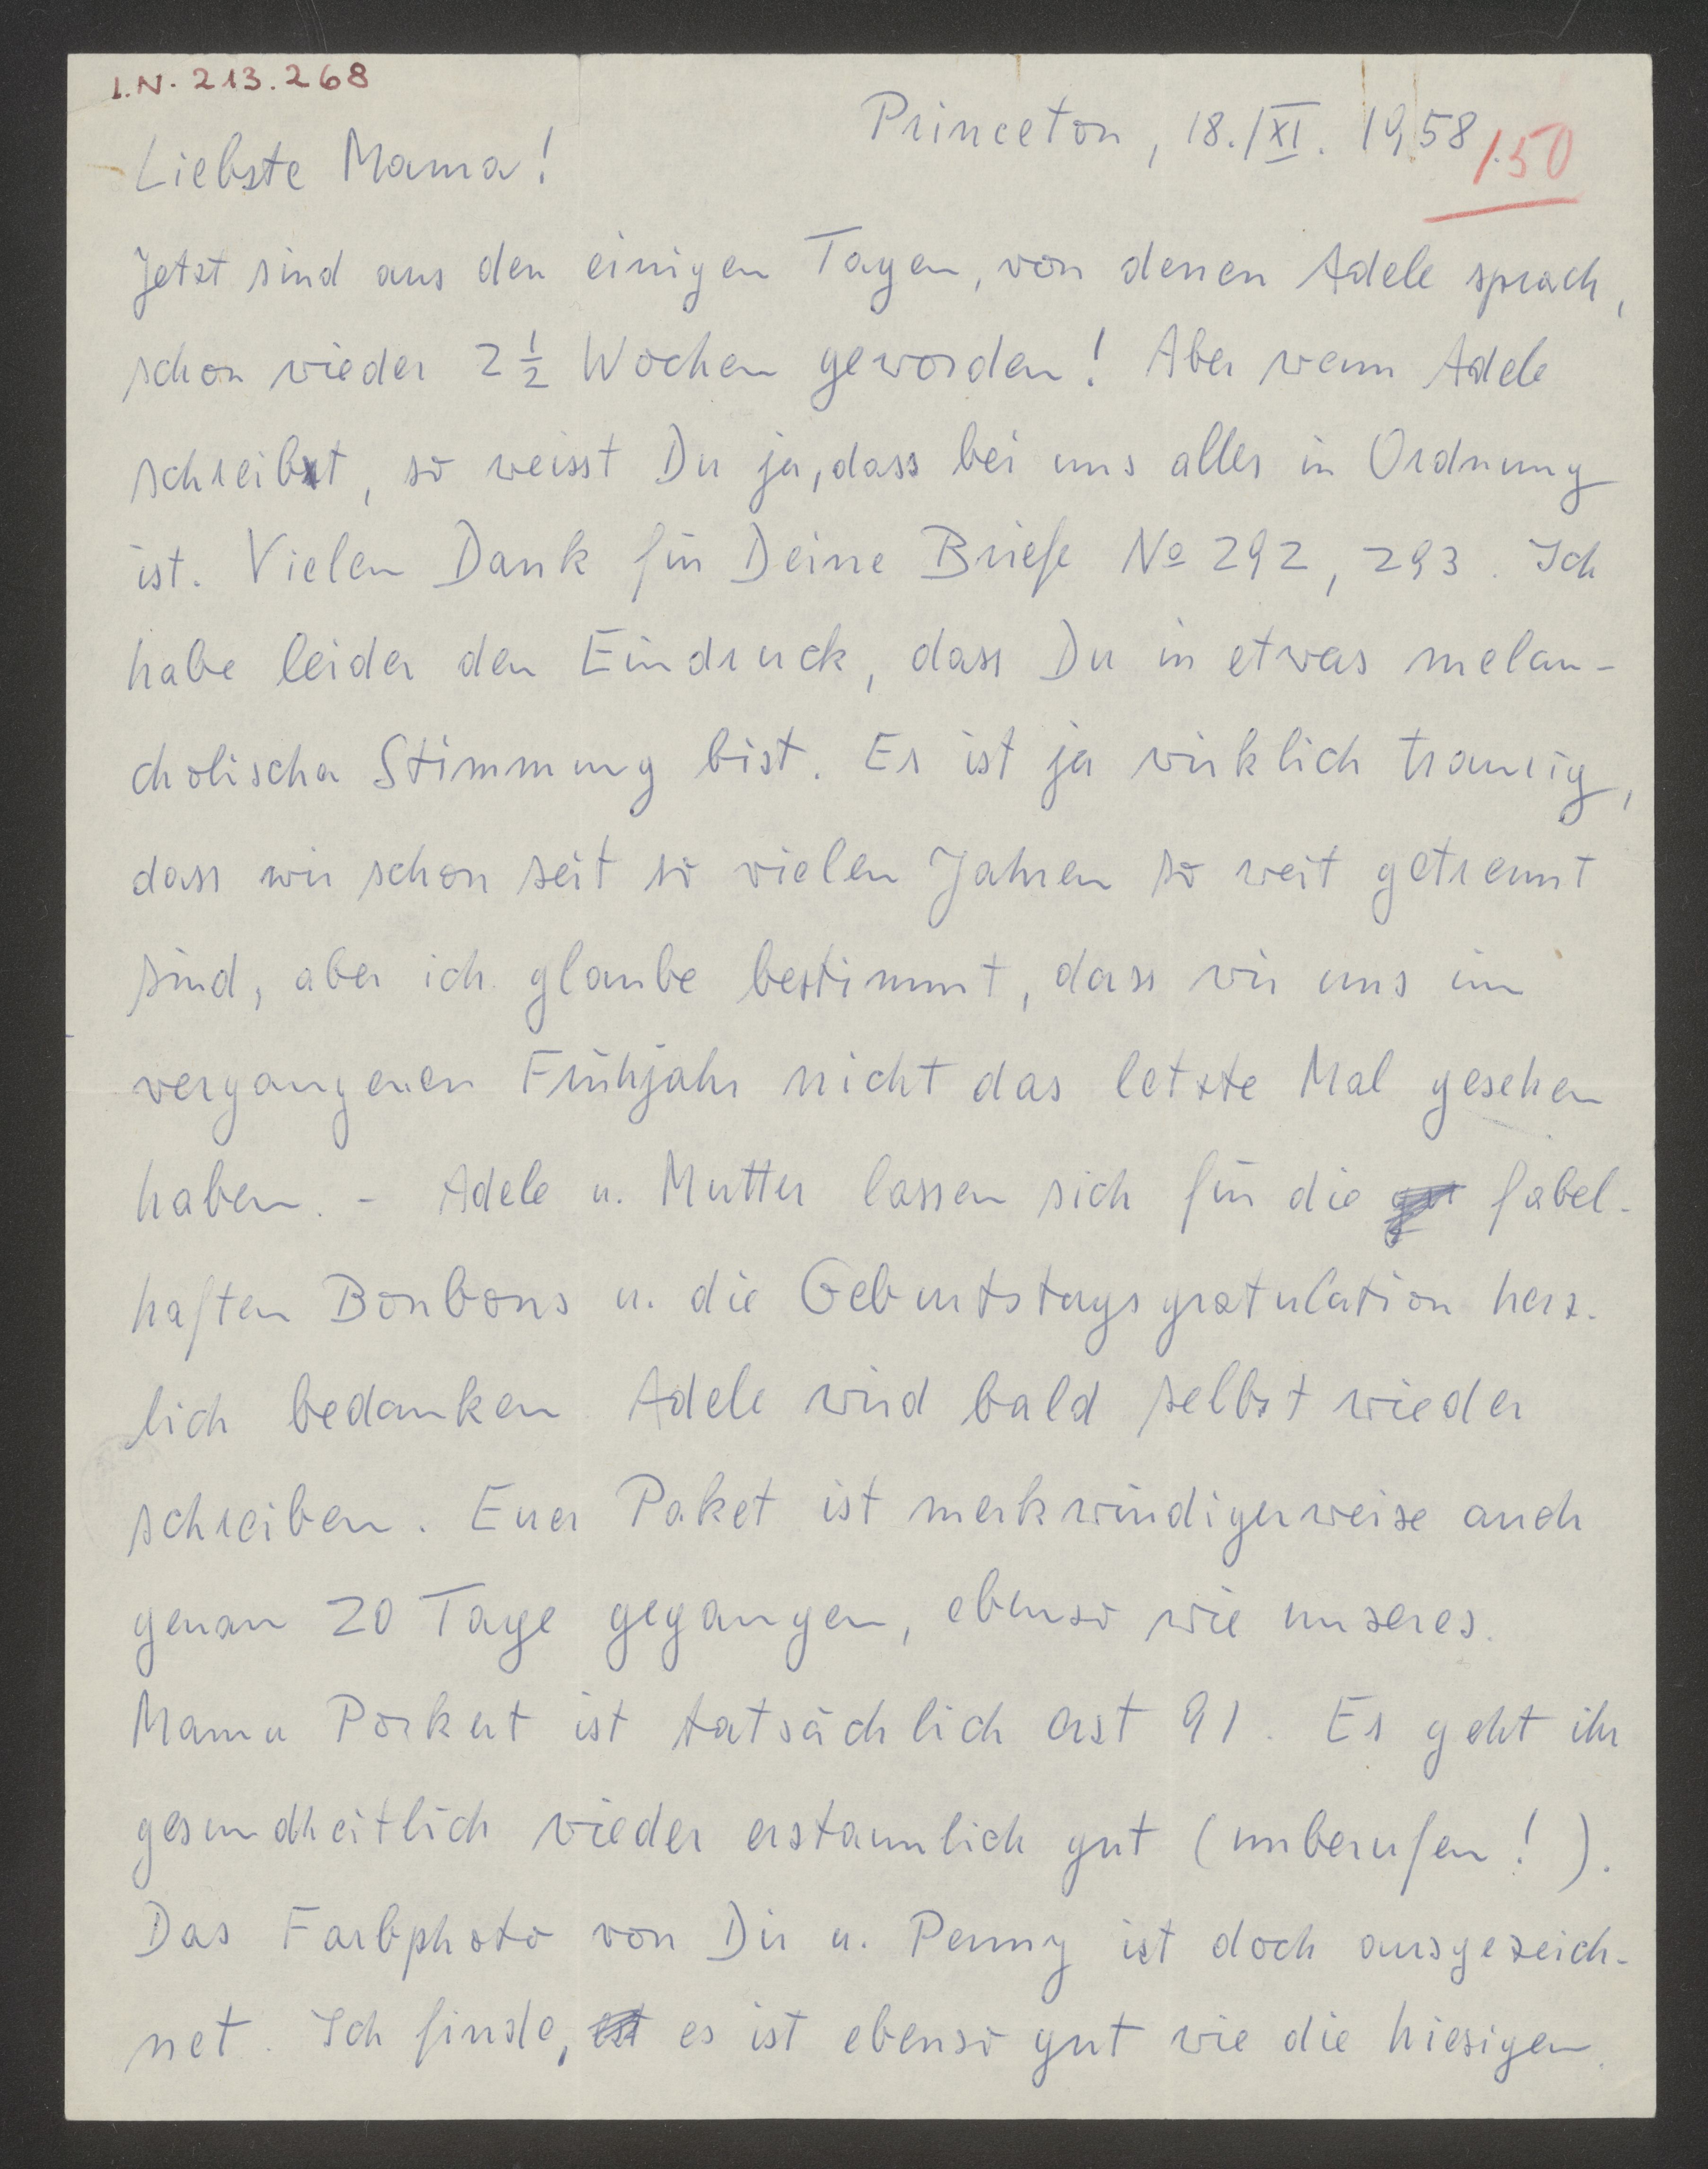 I.N. 213.268
Princeton, 18./XI. 1958
150
Liebste Mama!
Jetzt sind aus den einigen Tagen, von denen Adele sprach,
schon wieder 2 1/2 Wochen geworden! Aber wenn Adele
schreibt, so weisst Du ja, dass bei uns alles in Ordnung
ist. Vielen Dank für Deine Briefe No 292, 293. Ich
habe leider den Eindruck, dass Du in etwas melan-
cholischer Stimmung bist. Es ist ja wirklich traurig,
dass wir schon seit so vielen Jahren so weit getrennt
sind, aber ich glaube bestimmt, dass wir uns im
vergangenen Frühjahr nicht das letzte Mal gesehen
haben. - Adele u. Mutter lassen sich für die fabel-
haften Bonbons u. die Geburtstagsgratulation herz-
lich bedanken. Adele wird bald selbst wieder
schreiben. Euer Paket ist merkwürdigerweise auch
genau 20 Tage gegangen, ebenso wie unseres.
Mama Porkert ist tatsächlich erst 91. Es geht ihr
gesundheitlich wieder erstaunlich gut (unberufen!).
Das Farbphoto von Dir u. Penny ist doch ausgezeich-
net. Ich finde, es ist ebenso gut wie die hiesigen.